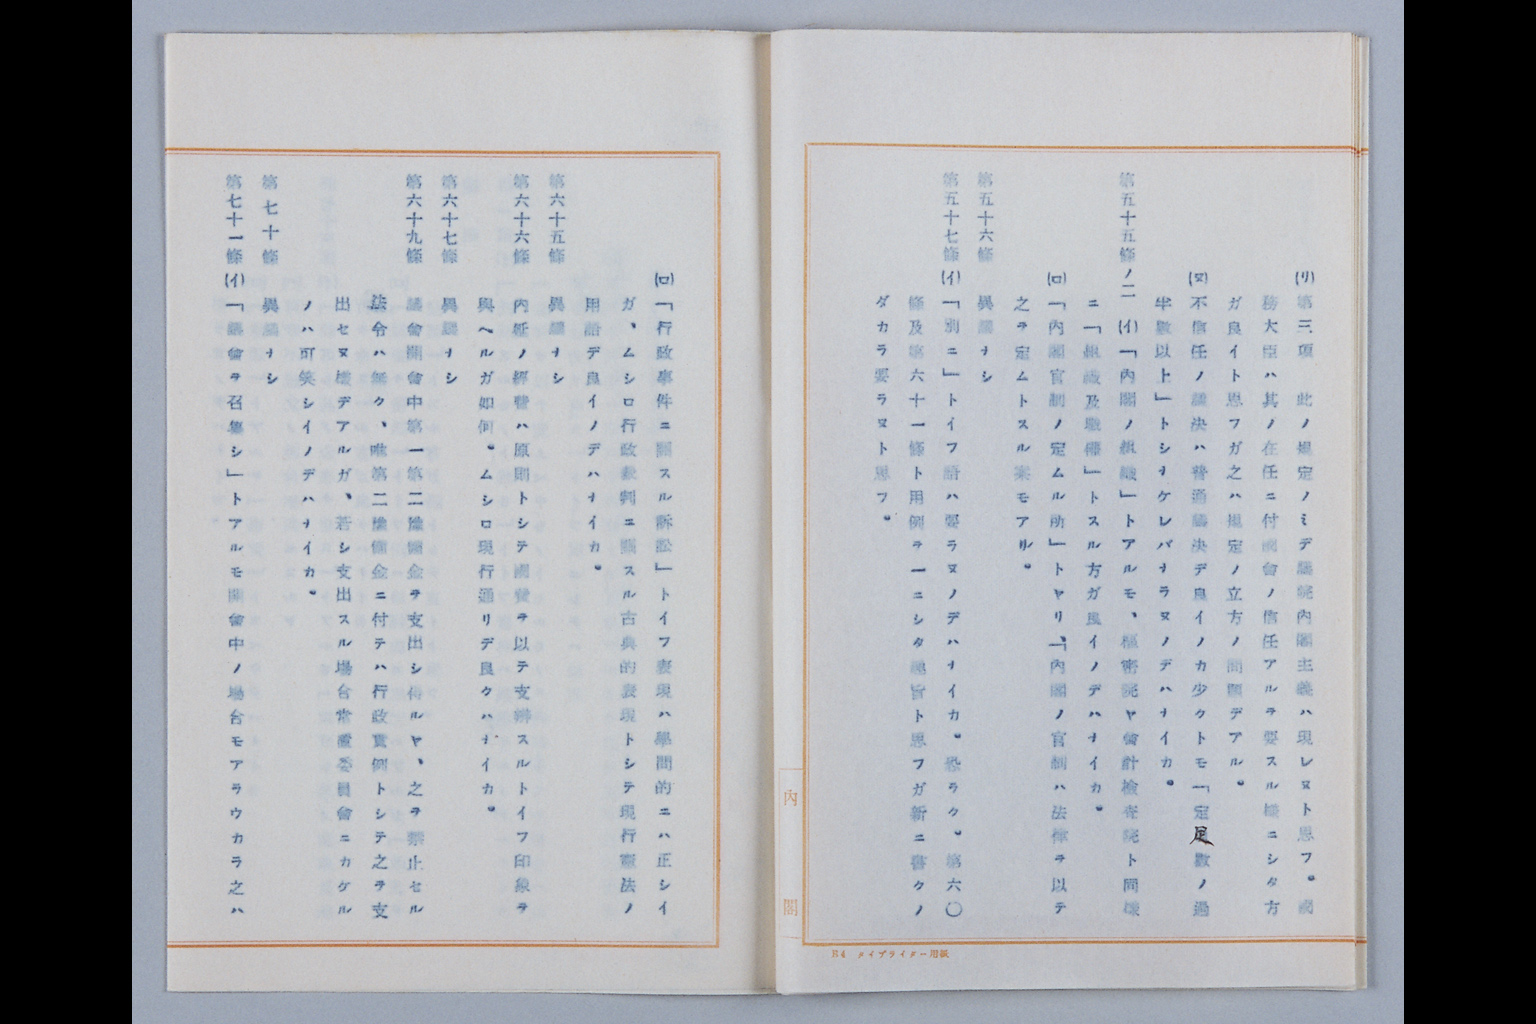 (リ)第三項　此ノ規定ノミデ議院內閣主義ハ現レヌト思フ。國
務大臣ハ其ノ在任ニ付國會ノ信任アルヲ要スル樣ニシタ方
ガ良イト思フガ之ハ規定ノ立方ノ問題デアル。
(ヌ)不信任ノ議決ハ普通議決デ良イノカ少クトモ「定足數ノ過
半數以上」トシナケレバナラヌノデハナイカ。
第五十五條ノ二　(イ)「內閣ノ組織」トアルモ、樞密院ヤ會計檢査院ト同樣
ニ「組織及職權」トスル方ガ良イノデハナイカ。
(ロ)「內閣官制ノ定ムル所」トヤリ、「內閣ノ官制ハ法律ヲ以テ
之ヲ定ムトスル案モアリ。
第五十六條　異議ナシ
第五十七條　(イ)「別ニ」トイフ語ハ要ラヌノデハナイカ。恐ラク。第六〇
條及第六十一條ト用例ヲ一ニシタ趣旨ト思フガ新ニ書クノ
ダカラ要ラヌト思フ。
內閣
B4　タイプライター用紙
(ロ)「行政事件ニ關スル訴訟」トイフ表現ハ學問的ニハ正シイ
ガ、ムシロ行政裁判ニ關スル古典的表現トシテ現行憲法ノ
用語デ良イノデハナイカ。
第六十五條　異議ナシ
第六十六條　內廷ノ經費ハ原則トシテ國費ヲ以テ支辨スルトイフ印象ヲ
與ヘルガ如何。ムシロ現行通リデ良クハナイカ。
第六十七條　異議ナシ
第六十九條　議會開會中第一第二豫備金ヲ支出シ得ルヤ、之ヲ禁止セル
法令ハ無ク、唯第二豫備金ニ付テハ行政實例トシテ之ヲ支
出セヌ樣デアルガ、若シ支出スル場合常置委員會ニカケル
ノハ可笑シイノデハナイカ。
第七十條　異議ナシ
第七十一條　(イ)「議會ヲ召集シ」トアルモ開會中ノ場合モアラウカラ之ハ